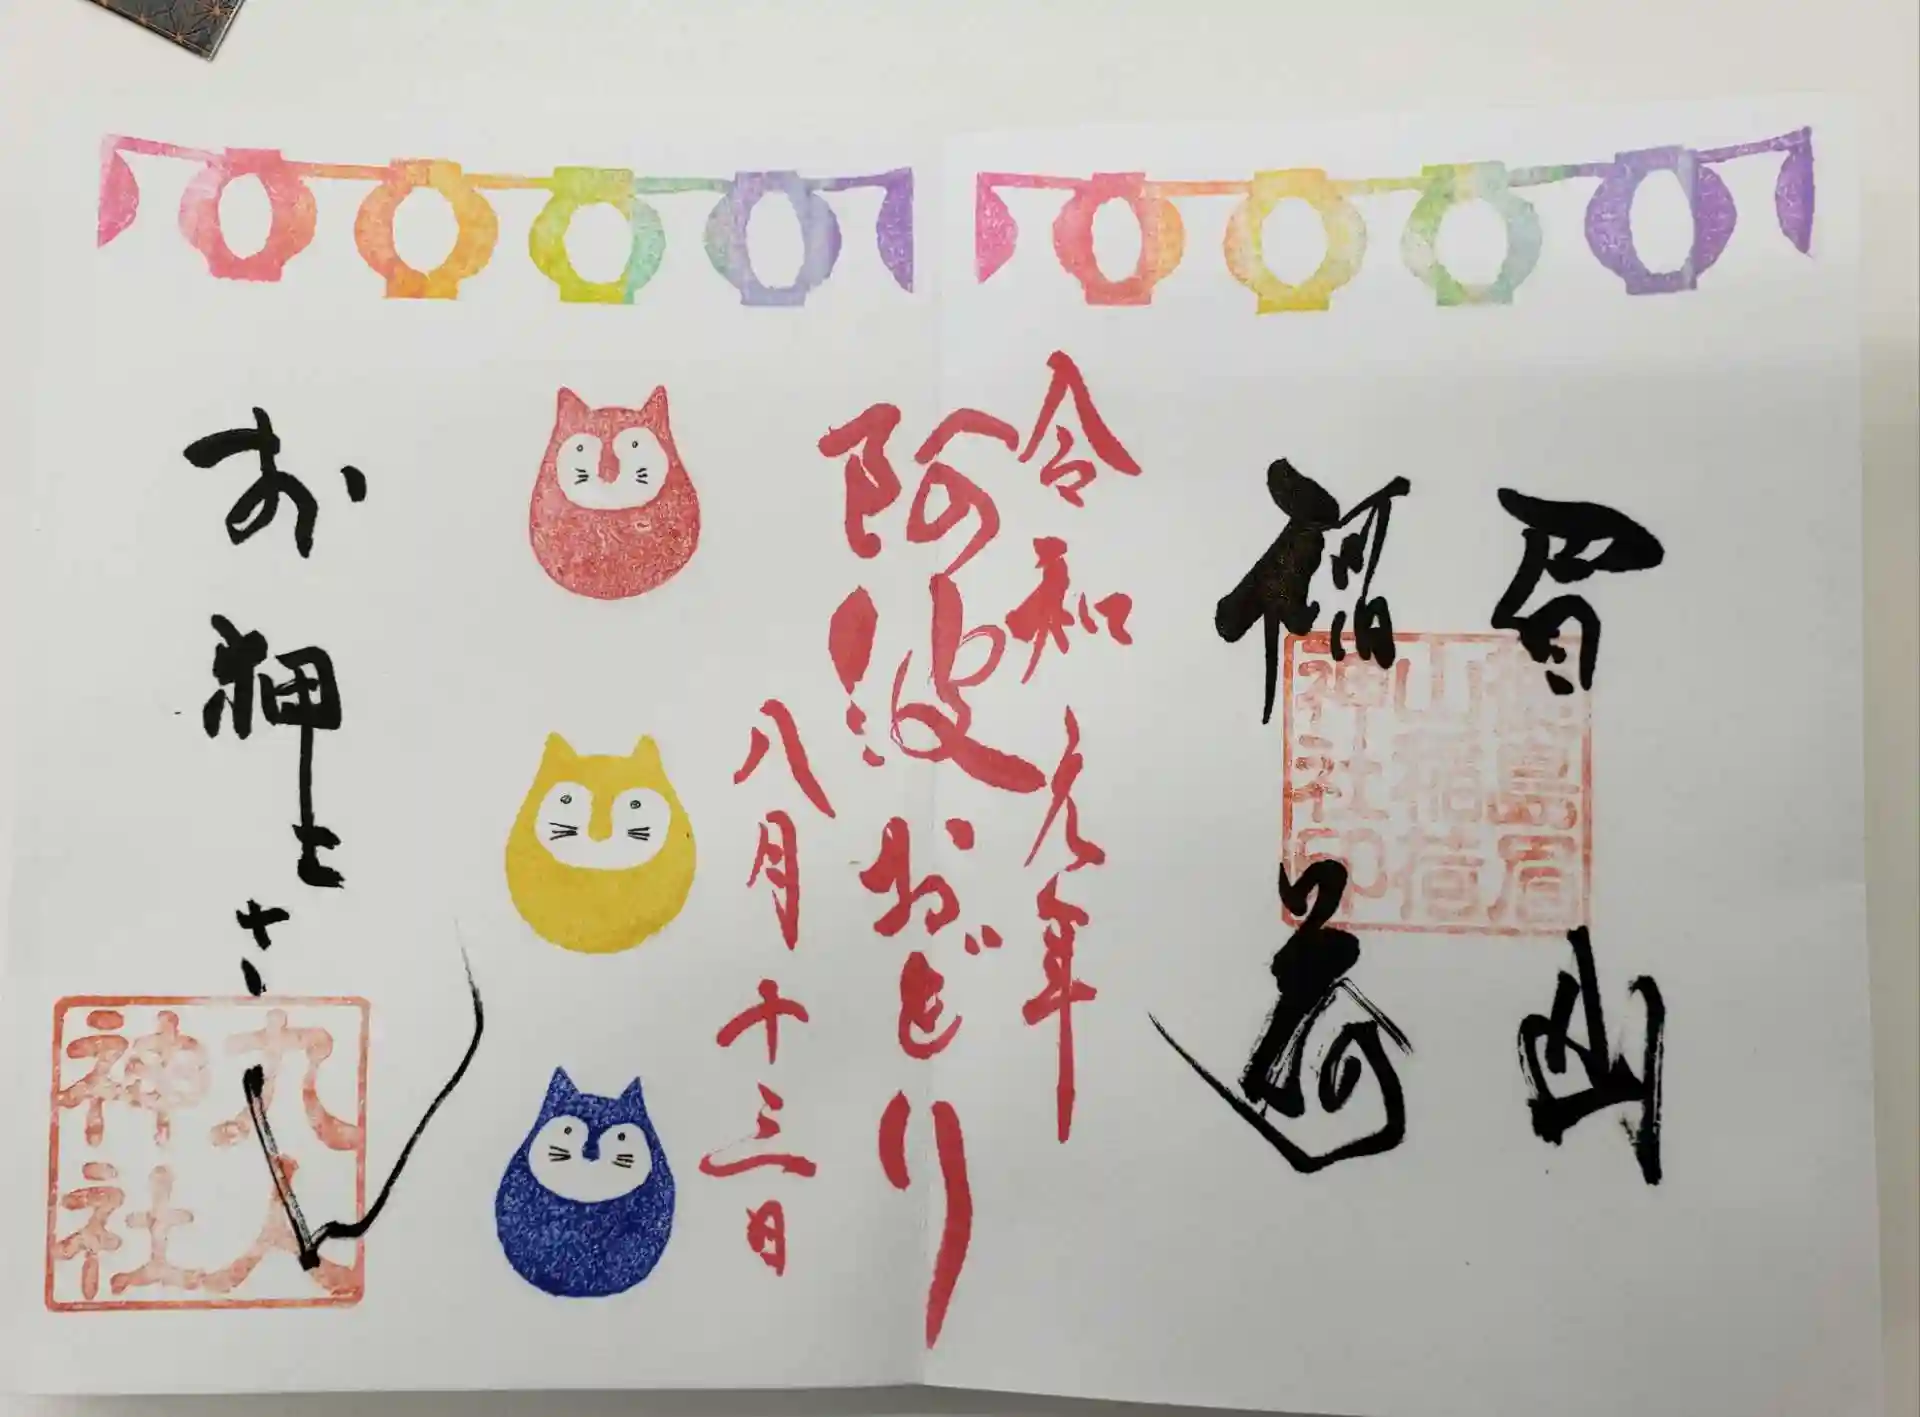 眉山
稲荷
徳島眉
山稲荷
神社印
令和元年
阿波おどり
八月十三日
お
さん
神社